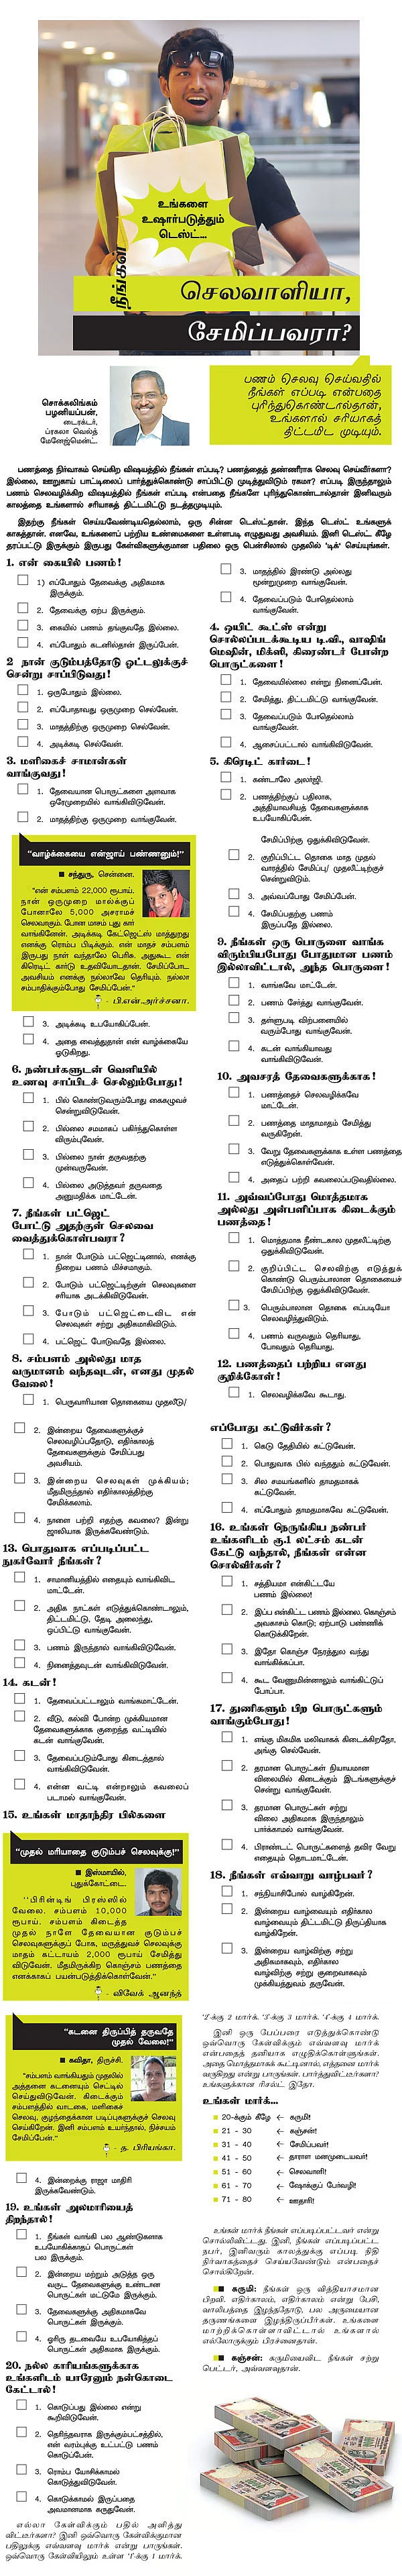 உங்களை
உஷார்படுத்தும்
டெஸ்ட்...
நீங்கள்
செலவாளியா,
சேமிப்பவரா?
சொக்கலிங்கம்
பழனியப்பன்,
டைரக்டர்,
ப்ரகலா வெல்த்
மேனேஜ்மென்ட்.
பணம் செலவு செய்வதில்
நீங்கள் எப்படி என்பதை
புரிந்துகொண்டால்தான்,
உங்களால் சரியாகத்
திட்டமிட முடியும்.
பணத்தை நிர்வாகம் செய்கிற விஷயத்தில் நீங்கள் எப்படி? பணத்தைத் தண்ணீராக செலவு செய்வீர்களா?
இல்லை, ஊறுகாய் பாட்டிலைப் பார்த்துக்கொண்டு சாப்பிட்டு முடித்துவிடும் ரகமா? எப்படி இருந்தாலும்
பணம் செலவழிக்கிற விஷயத்தில் நீங்கள் எப்படி என்பதை நீங்களே புரிந்துகொண்டால்தான் இனிவரும்
காலத்தை உங்களால் சரியாகத் திட்டமிட்டு நடத்தமுடியும்.
இதற்கு நீங்கள் செய்யவேண்டியதெல்லாம், ஒரு சின்ன டெஸ்ட்தான். இந்த டெஸ்ட் உங்களுக்
காகத்தான். எனவே, உங்களைப் பற்றிய உண்மைகளை உள்ளபடி எழுதுவது அவசியம். இனி டெஸ்ட். கீழே
தரப்பட்டு இருக்கும் இருபது கேள்விகளுக்குமான பதிலை ஒரு பென்சிலால் முதலில் 'டிக்' செய்யுங்கள்.
1. என் கையில் பணம்!
1) எப்போதும் தேவைக்கு அதிகமாக
இருக்கும்.
2. தேவைக்கு ஏற்ப இருக்கும்.
3. கையில் பணம் தங்குவதே இல்லை.
4. எப்போதும் கடனில்தான் இருப்பேன்.
2 நான் குடும்பத்தோடு ஓட்டலுக்குச்
சென்று சாப்பிடுவது!
1. ஒருபோதும் இல்லை.
2. எப்போதாவது ஒருமுறை செல்வேன்.
3. மாதத்திற்கு ஒருமுறை செல்வேன்.
4. அடிக்கடி செல்வேன்.
3. மளிகைச் சாமான்கள்
வாங்குவது!
1. தேவையான பொருட்களை அளவாக
ஒரேமுறையில் வாங்கிவிடுவேன்.
2. மாதத்திற்கு ஒருமுறை வாங்குவேன்.
3. மாதத்தில் இரண்டு அல்லது
மூன்றுமுறை வாங்குவேன்.
4. தேவைப்படும் போதெல்லாம்
வாங்குவேன்.
4. ஒயிட் கூட்ஸ் என்று
சொல்லப்படக்கூடிய டி.வி., வாஷிங்
மெஷின், மிக்ஸி, கிரைண்டர் போன்ற
பொருட்களை!
1. தேவையில்லை என்று நினைப்பேன்.
2. சேமித்து, திட்டமிட்டு வாங்குவேன்.
3. தேவைப்படும் போதெல்லாம்
வாங்குவேன்.
4. ஆசைப்பட்டால் வாங்கிவிடுவேன்.
5. கிரெடிட் கார்டை!
1. கண்டாலே அலர்ஜி.
2. பணத்திற்குப் பதிலாக,
அத்தியாவசியத் தேவைகளுக்காக
உபயோகிப்பேன்.
"வாழ்க்கையை என்ஜாய் பண்ணணும்!"
■ சந்துரு, சென்னை.
"என் சம்பளம் 22,000 ரூபாய்.
நான் ஒருமுறை மாலுக்குப்
போனாலே 5,000 அசராமச்
செலவாகும். போன மாசம் புது கார்
வாங்கினேன். அடிக்கடி கேட்ஜெட்ஸ் மாத்துறது
எனக்கு ரொம்ப பிடிக்கும். என் மாதச் சம்பளம்
இருபது நாள் வந்தாலே பெரிசு. அதுகூட என்
கிரெடிட் கார்டு உதவியோடதான். சேமிப்போட
அவசியம் எனக்கு நல்லாவே தெரியும். நல்லா
சம்பாதிக்கும்போது சேமிப்பேன்."
- பி.என்.அர்ச்சனா.
3. அடிக்கடி உபயோகிப்பேன்.
4. அதை வைத்துதான் என் வாழ்க்கையே
ஓடுகிறது.
6. நண்பர்களுடன் வெளியில்
உணவு சாப்பிடச் செல்லும்போது!
1. பில் கொண்டுவரும்போது கைகழுவச்
சென்றுவிடுவேன்.
2. பில்லை சமமாகப் பகிர்ந்துகொள்ள
விரும்புவேன்.
3. பில்லை நான் தருவதற்கு
முன்வருவேன்.
4. பில்லை அடுத்தவர் தருவதை
அனுமதிக்க மாட்டேன்.
7. நீங்கள் பட்ஜெட்
போட்டு அதற்குள் செலவை
வைத்துக்கொள்பவரா?
1. நான் போடும் பட்ஜெட்டினால், எனக்கு
நிறைய பணம் மிச்சமாகும்.
2. போடும் பட்ஜெட்டிற்குள் செலவுகளை
சரியாக அடக்கிவிடுவேன்.
3. போடும் பட்ஜெட்டைவிட என்
செலவுகள் சற்று அதிகமாகிவிடும்.
4. பட்ஜெட் போடுவதே இல்லை.
8. சம்பளம் அல்லது மாத
வருமானம் வந்தவுடன், எனது முதல்
வேலை!
1. பெருவாரியான தொகையை முதலீடு/
சேமிப்பிற்கு ஒதுக்கிவிடுவேன்.
2. குறிப்பிட்ட தொகை மாத முதல்
வாரத்தில் சேமிப்பு/ முதலீட்டிற்குச்
சென்றுவிடும்.
3. அவ்வப்போது சேமிப்பேன்.
4. சேமிப்பதற்கு பணம்
இருப்பதே இல்லை.
9. நீங்கள் ஒரு பொருளை வாங்க
விரும்பியபோது போதுமான பணம்
இல்லாவிட்டால், அந்த பொருளை!
1. வாங்கவே மாட்டேன்.
2. பணம் சேர்த்து வாங்குவேன்.
3. தள்ளுபடி விற்பனையில்
வரும்போது வாங்குவேன்.
4. கடன் வாங்கியாவது
வாங்கிவிடுவேன்.
10. அவசரத் தேவைகளுக்காக!
1. பணத்தைச் செலவழிக்கவே
மாட்டேன்.
2. பணத்தை மாதாமாதம் சேமித்து
வருகிறேன்.
3. வேறு தேவைகளுக்காக உள்ள பணத்தை
எடுத்துக்கொள்வேன்.
4. அதைப் பற்றி கவலைப்படுவதில்லை.
11. அவ்வப்போது மொத்தமாக
அல்லது அன்பளிப்பாக கிடைக்கும்
பணத்தை!
1. மொத்தமாக நீண்டகால முதலீட்டிற்கு
ஒதுக்கிவிடுவேன்.
2. குறிப்பிட்ட செலவிற்கு எடுத்துக்
கொண்டு பெரும்பாலான தொகையைச்
சேமிப்பிற்கு ஒதுக்கிவிடுவேன்.
3. பெரும்பாலான தொகை எப்படியோ
செலவழிந்துவிடும்.
4. பணம் வருவதும் தெரியாது,
போவதும் தெரியாது.
12. பணத்தைப் பற்றிய எனது
குறிக்கோள்!
1. செலவழிக்கவே கூடாது.
2. இன்றைய தேவைகளுக்குச்
செலவழிப்பதோடு, எதிர்காலத்
தேவைகளுக்கும் சேமிப்பது
அவசியம்.
3. இன்றைய செலவுகள் முக்கியம்;
மீதமிருந்தால் எதிர்காலத்திற்கு
சேமிக்கலாம்.
4. நாளை பற்றி எதற்கு கவலை? இன்று
ஜாலியாக இருக்கவேண்டும்.
13. பொதுவாக எப்படிப்பட்ட
நுகர்வோர் நீங்கள்?
1. சாமானியத்தில் எதையும் வாங்கிவிட
மாட்டேன்.
2. அதிக நாட்கள் எடுத்துக்கொண்டாலும்,
திட்டமிட்டு, தேடி அலைந்து,
ஒப்பிட்டு வாங்குவேன்.
3. பணம் இருந்தால் வாங்கிவிடுவேன்.
4. நினைத்தவுடன் வாங்கிவிடுவேன்.
14. கடன்!
1. தேவைப்பட்டாலும் வாங்கமாட்டேன்.
2. வீடு, கல்வி போன்ற முக்கியமான
தேவைகளுக்காக குறைந்த வட்டியில்
கடன் வாங்குவேன்.
3. தேவைப்படும்போது கிடைத்தால்
வாங்கிவிடுவேன்.
4. என்ன வட்டி என்றாலும் கவலைப்
படாமல் வாங்குவேன்.
15. உங்கள் மாதாந்திர பில்களை
எப்போது கட்டுவீர்கள்?
1. கெடு தேதியில் கட்டுவேன்.
2. பொதுவாக பில் வந்ததும் கட்டுவேன்.
3. சில சமயங்களில் தாமதமாகக்
கட்டுவேன்.
4. எப்போதும் தாமதமாகவே கட்டுவேன்.
16. உங்கள் நெருங்கிய நண்பர்
உங்களிடம் ரூ.1 லட்சம் கடன்
கேட்டு வந்தால், நீங்கள் என்ன
சொல்வீர்கள்?
1. சத்தியமா என்கிட்டயே
பணம் இல்லை!
2. இப்ப என்கிட்ட பணம் இல்லை. கொஞ்சம்
அவகாசம் கொடு; ஏற்பாடு பண்ணிக்
கொடுக்கிறேன்.
3. இதோ கொஞ்ச நேரத்துல வந்து
வாங்கிக்கப்பா.
4. கூட வேணுமின்னாலும் வாங்கிட்டுப்
போப்பா.
17. துணிகளும் பிற பொருட்களும்
வாங்கும்போது!
1. எங்கு மிகமிக மலிவாகக் கிடைக்கிறதோ,
அங்கு செல்வேன்.
2. தரமான பொருட்கள் நியாயமான
விலையில் கிடைக்கும் இடங்களுக்குச்
சென்று வாங்குவேன்.
3. தரமான பொருட்கள் சற்று
விலை அதிகமாக இருந்தாலும்
பார்க்காமல் வாங்குவேன்.
4. பிராண்டட் பொருட்களைத் தவிர வேறு
எதையும் தொடமாட்டேன்.
18. நீங்கள் எவ்வாறு வாழ்பவர்?
1. சந்நியாசிபோல் வாழ்கிறேன்.
2. இன்றைய வாழ்வையும் எதிர்கால
வாழ்வையும் திட்டமிட்டு திருப்தியாக
வாழ்கிறேன்.
3. இன்றைய வாழ்விற்கு சற்று
அதிகமாகவும், எதிர்கால
வாழ்விற்கு சற்று குறைவாகவும்
முக்கியத்துவம் தருவேன்.
"முதல் மரியாதை குடும்பச் செலவுக்கு!"
■ இஸ்மாயில்,
புதுக்கோட்டை.
''பிரின்டிங் பிரஸ்ஸில்
வேலை. சம்பளம் 10,000
ரூபாய். சம்பளம் கிடைத்த
முதல் நாளே தேவையான குடும்பச்
செலவுகளுக்குப் போக, மருத்துவச் செலவுக்கு
மாதம் கட்டாயம் 2,000 ரூபாய் சேமித்து
விடுவேன். மீதமிருக்கிற கொஞ்சம் பணத்தை
எனக்காகப் பயன்படுத்திக்கொள்வேன்."
- விவேக் ஆனந்த்
"கடனை திருப்பித் தருவதே
முதல் வேலை!"
■ கவிதா, திருச்சி.
"சம்பளம் வாங்கியதும் முதலில்
அத்தனை கடனையும் செட்டில்
செய்துவிடுவேன். கிடைக்கும்
சம்பளத்தில் வாடகை, மளிகைச்
செலவு, குழந்தைக்கான படிப்புகளுக்குச் செலவு
செய்கிறேன். இனி சம்பளம் உயர்ந்தால், நிச்சயம்
சேமிப்பேன்."
- த. பிரியங்கா.
4. இன்றைக்கு ராஜா மாதிரி
இருக்கவேண்டும்.
19. உங்கள் அலமாரியைத்
திறந்தால்!
1. நீங்கள் வாங்கி பல ஆண்டுகளாக
உபயோகிக்காதப் பொருட்கள்
பல இருக்கும்.
2. இன்றைய மற்றும் அடுத்த ஒரு
வருட தேவைகளுக்கு உண்டான
பொருட்கள் மட்டுமே இருக்கும்.
3. தேவைகளுக்கு அதிகமாகவே
பொருட்கள் இருக்கும்.
4. ஓரிரு தடவையே உபயோகித்தப்
பொருட்கள் அதிகமாக இருக்கும்.
20. நல்ல காரியங்களுக்காக
உங்களிடம் யாரேனும் நன்கொடை
கேட்டால்!
1. கொடுப்பது இல்லை என்று
கூறிவிடுவேன்.
2. தெரிந்தவராக இருக்கும்பட்சத்தில்,
என் வரம்புக்கு உட்பட்டு பணம்
கொடுப்பேன்.
3. ரொம்ப யோசிக்காமல்
கொடுத்துவிடுவேன்.
4. கொடுக்காமல் இருப்பதை
அவமானமாக கருதுவேன்.
எல்லா கேள்விக்கும் பதில் அளித்து
விட்டீர்களா? இனி ஒவ்வொரு கேள்விக்குமான
பதிலுக்கு எவ்வளவு மார்க் என்று பாருங்கள்.
ஒவ்வொரு கேள்வியிலும் உள்ள '1'-க்கு 1 மார்க்.
'2'-க்கு 2 மார்க். '3'-க்கு 3 மார்க். '4'-க்கு 4 மார்க்.
இனி ஒரு பேப்பரை எடுத்துக்கொண்டு
ஒவ்வொரு கேள்விக்கும் எவ்வளவு மார்க்
என்பதைத் தனியாக எழுதிக்கொள்ளுங்கள்.
அதை மொத்தமாகக் கூட்டினால், எத்தனை மார்க்
வருகிறது என்று பாருங்கள். பார்த்துவிட்டீர்களா?
உங்களுக்கான ரிசல்ட் இதோ.
உங்கள் மார்க்...
20-க்கும் கீழே ← கருமி!
21 - 30 ← கஞ்சன்!
31 - 40 ← சேமிப்பவர்!
41 - 50 ← தாராள மனமுடையவர்!
51 - 60 ← செலவாளி!
61 - 70 ← ஷோக்குப் பேர்வழி!
71 - 80 ← ஊதாரி!
உங்கள் மார்க் நீங்கள் எப்படிப்பட்டவர் என்று
சொல்லிவிட்டது. இனி, நீங்கள் எப்படிப்பட்ட
நபர், இனிவரும் காலத்துக்கு எப்படி நிதி
நிர்வாகத்தைச் செய்யவேண்டும் என்பதைச்
சொல்கிறேன்.
■■ கருமி: நீங்கள் ஒரு வித்தியாசமான
பிறவி. எதிர்காலம், எதிர்காலம் என்று பேசி,
வாலிபத்தை இழந்ததோடு, பல அருமையான
தருணங்களை இழந்திருப்பீர்கள். உங்களை
மாற்றிக்கொள்ளாவிட்டால் உங்களால்
எல்லோருக்கும் பிரச்னைதான்.
■■ கஞ்சன்: கருமியைவிட நீங்கள் சற்று
பெட்டர், அவ்வளவுதான்.